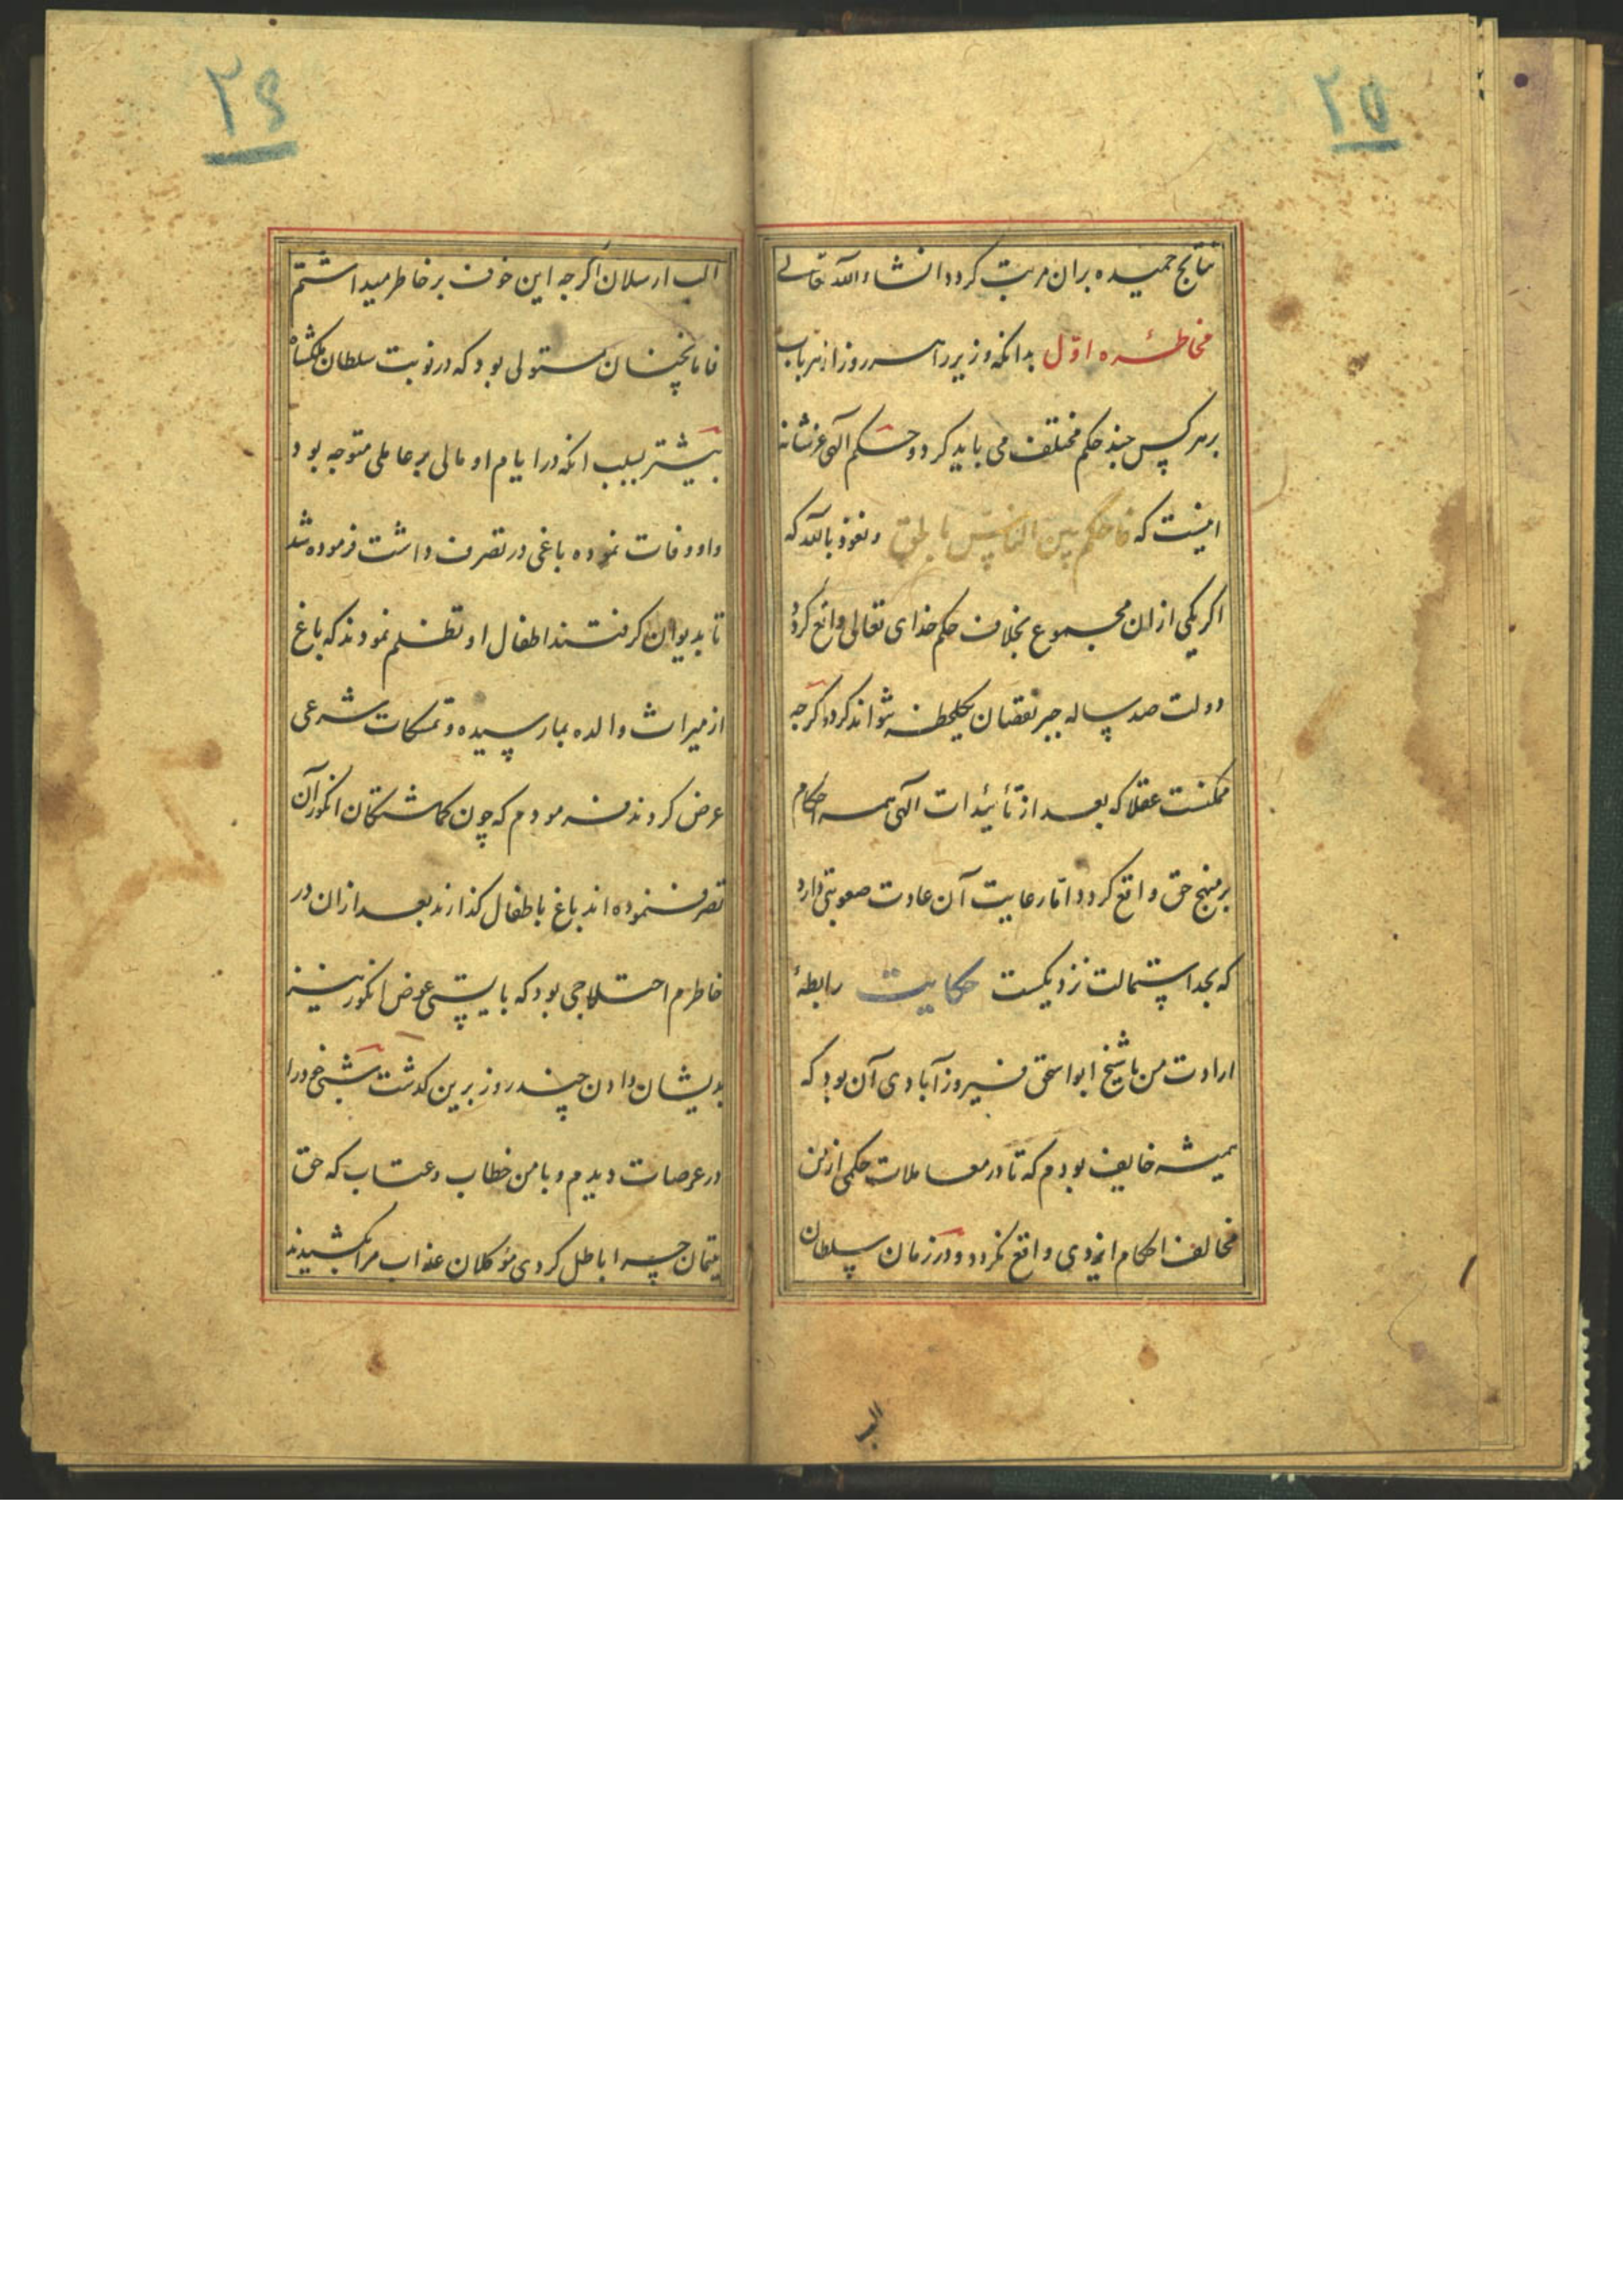 ۲۵
نتایج حمیده بران مرتب کردد انشاء الله تعالی
مخاطره اول بدانکه وزیر را هر روز از هر باب
بر هر کس چند حکم مختلف می باید کرد و حکم الهی عزشانه
اینست که فاحکم بین الناس بالحق و نعوذ بالله که
اکر یکی از ان مجموع بخلاف حکم خدای تعالی واقع کردد
دولت صد ساله جبر نقصان یکلحظه نتواند کرد و اکرچه
ممکنست عقلا که بعد از تأییدات الهی همه احکام
بر منهج حق واقع کردد اما رعایت آن عادت صعوبتی دارد
که بحد استحالت نزدیکست حکایت رابطهٔ
ارادت من با شیخ ابواسحق فیروزآبادی آن بود که
همیشه خایف بودم که تا در معاملات حکمی از من
مخالف احکام ایزدی واقع نکردد و در زمان سلطان
الب
۲۶
الب ارسلان اکرچه این خوف بر خاطر میداشتم
فاما نچنان مستولی بود که در نوبت سلطان ملکشاه
بیشتر بسبب انکه در ایام او مالی بر عاملی متوجه بود
و او وفات نموده باغی در تصرف داشت فرموده شد
تا بدیوان کرفتند اطفال او تظلم نمودند که باغ
از میراث والده بما رسیده و تمسکات شرعی
عرض کردند فرمودم که چون کماشتکان انکور آن
تصرف نموده اند باغ باطفال کذارند بعد ازان در
خاطرم اختلاجی بود که بایستی عوض انکور نیز
بدیشان دادن چند روز برین کذشت شبی خود را
در عرصات دیدم و با من خطاب و عتاب که حق
یتیمان چرا باطل کردی موکلان عذاب مرا کشیدند